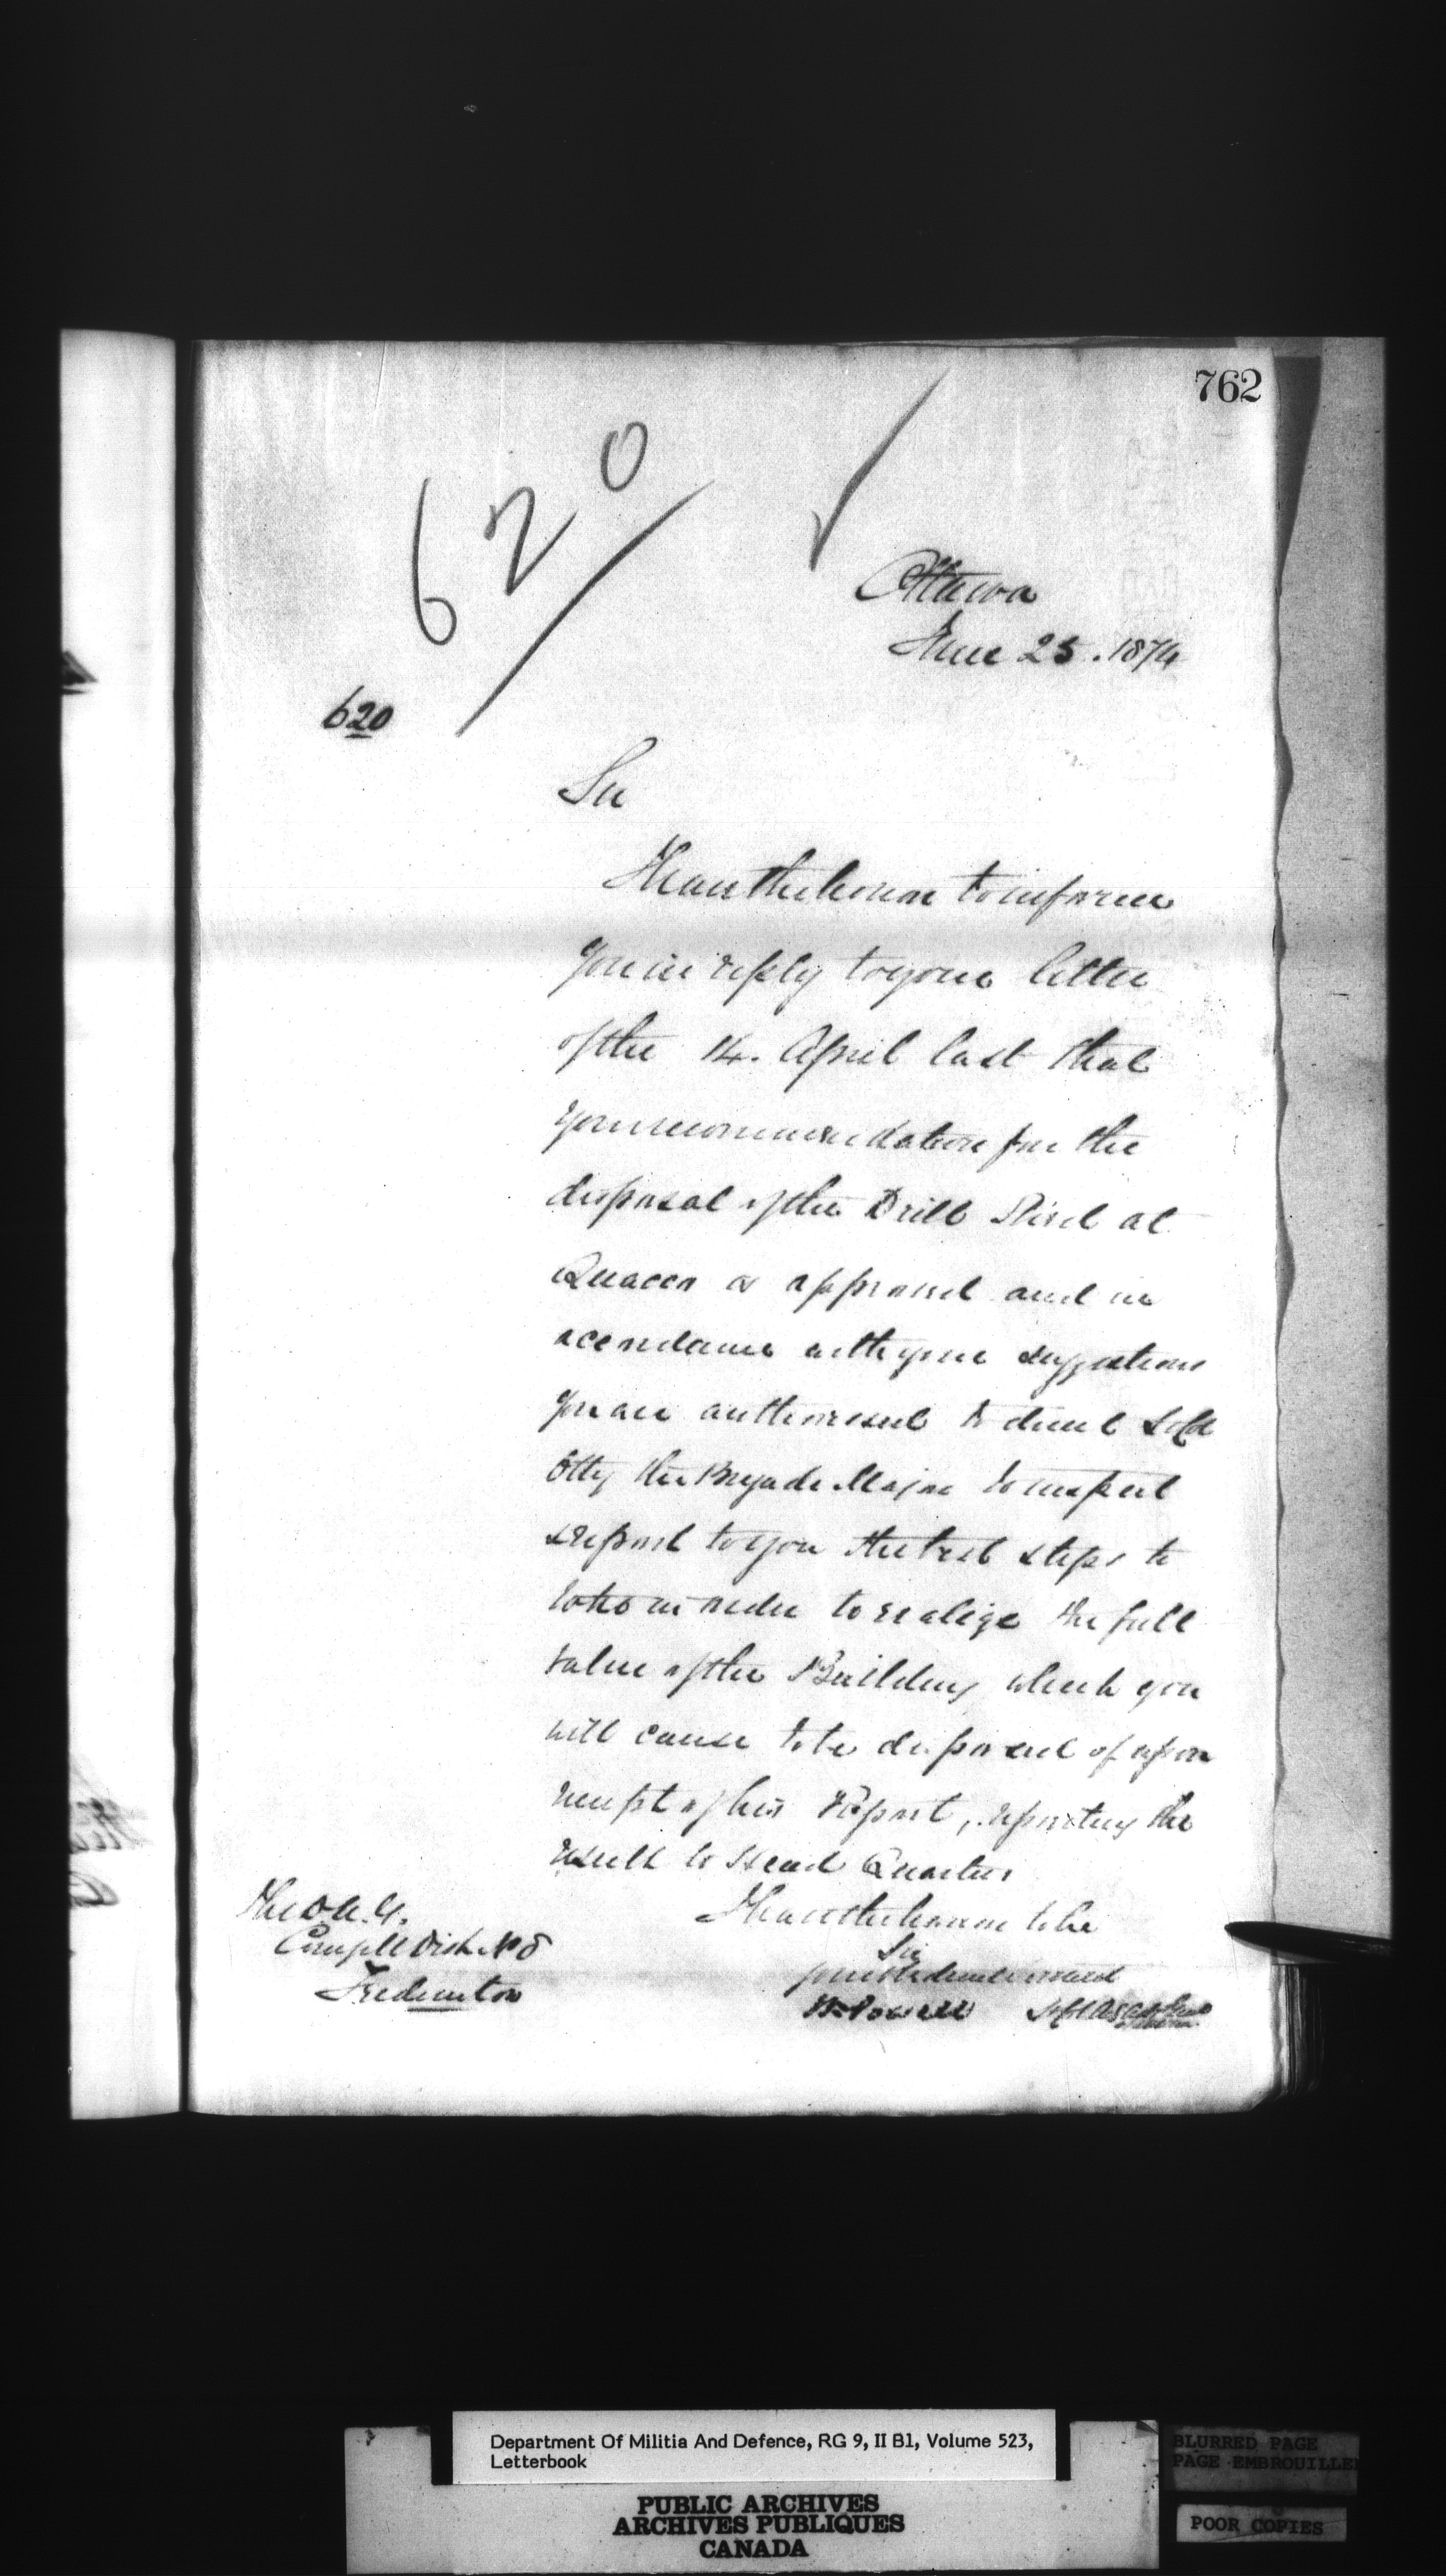 762
620
Ottawa
June 25. 1874
620
Sir
I have the honor to inform
you in reply to your letter
of the 14. April last that
your recommendation for the
disposal of the Drill Shed at
Quaco is approved and in
accordance with your suggestions
you are authorised to direct Lt Col
Otty the Brigade Major to inspect
& report to you the best steps to
take in order to realize the full
value of the Building which you
will cause to be disposed of upon
receipt of his Report, reporting the
result to Head Quarters
I have the honor to be
Sir
your obedient servant
W. Powell Lt Col
The D.A.G.
Comg Mil Dist. No 8
Fredericton
Department Of Militia And Defence, RG 9, II B1, Volume 523,
Letterbook
PUBLIC ARCHIVES
ARCHIVES PUBLIQUES
CANADA
BLURRED PAGE
PAGE EMBROUILLEE
POOR COPIES